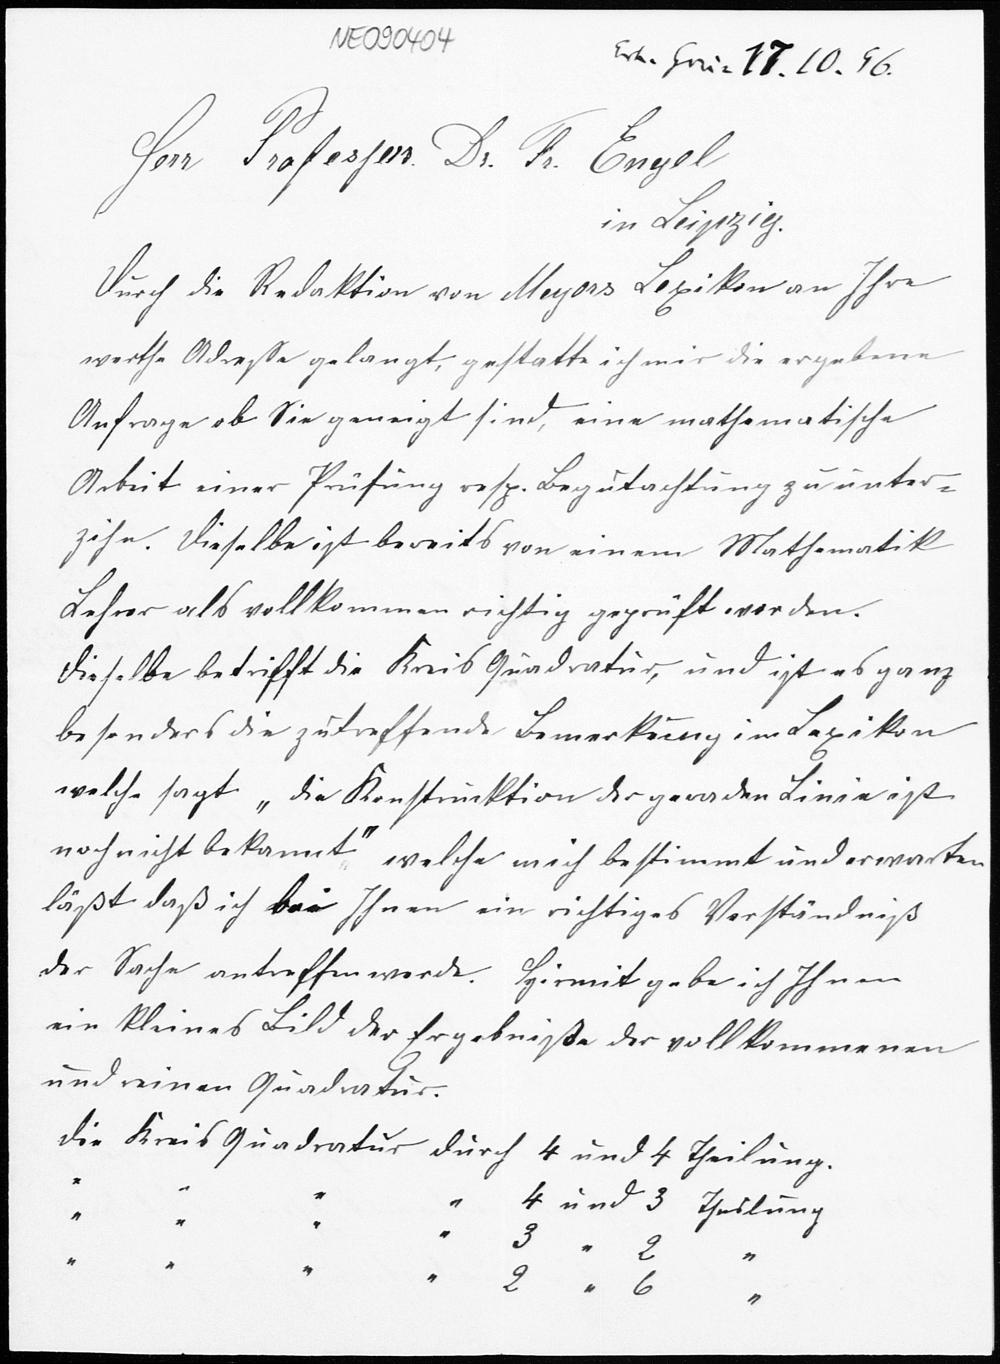 NE090404
17.10.96.
Herr Professor Dr. Fr. Engel
in Leipzig.
Durch die Redaktion von Meyers Lexikon an Ihre
werthe Adresse gelangt, gestatte ich mir die ergebene
Anfrage ob Sie geneigt sind, eine mathematische
Arbeit einer Prüfung resp. Begutachtung zu unter-
zihn. Dieselbe ist bereits von einem Mathematik
Lehrer als vollkommen richtig geprüft worden.
Dieselbe betrifft die Kreis Quadratur, und ist es ganz
besonders die zutreffende Bemerkung im Lexikon
welche sagt „die Konstruktion der geraden Linie ist
noch nicht bekannt" welche mich bestimmt und erwarten
läßt daß ich bei Ihnen ein richtiges Verständniß
der Sache antreffen werde. Hirmit gebe ich Ihnen
ein kleines Bild der Ergebniße der vollkommenen
und reinen Quadratur.
Die Kreis Quadratur durch 4 und 4 Theilung.
" " " " 4 und 3 Theilung
" " " " 3 " 2 "
" " " " 2 " 6 "